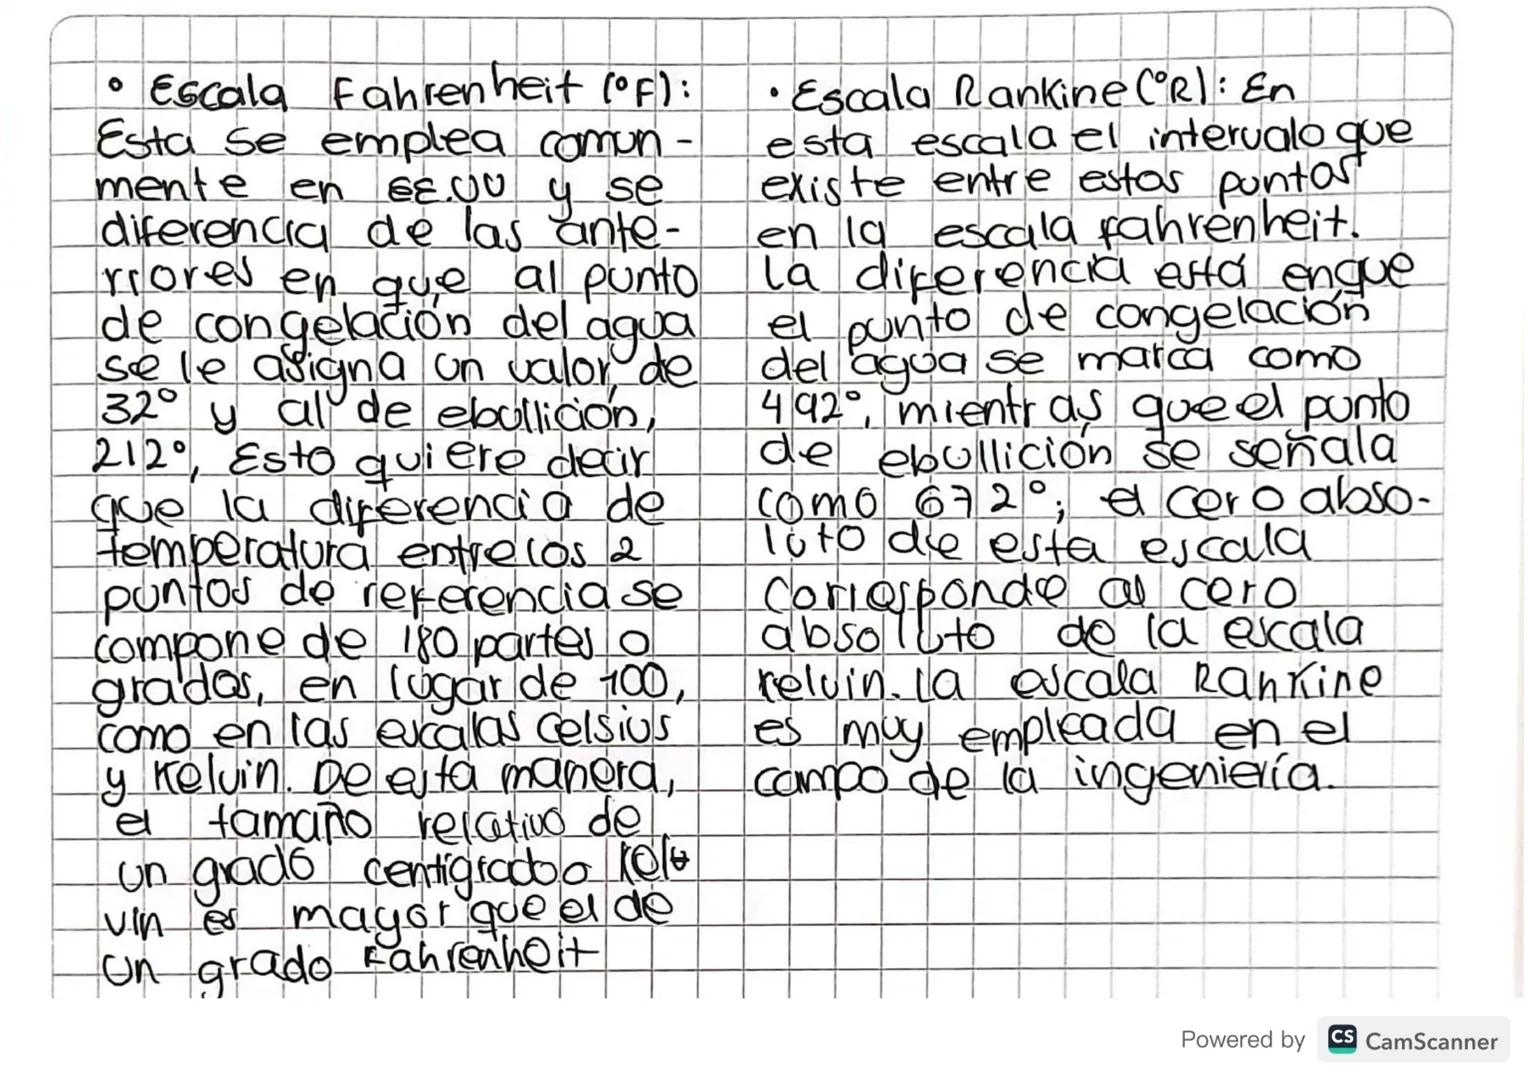 • Escala Fahrenheit (°F):
Esta se emplea comun-
mente en EE.UU y se
diferencia de las ante-
rriores en que al punto
de congelación del agua
se le asigna un valor de
32° y al de ebullición,
212°, Esto quiere decir
que la diferencia de
temperatura entre los 2
puntos de referencia se
compone de 180 partes o
grados, en lugar de 100,
como en las escalas Celsius
y Kelvin. De esta manera,
el tamaño relativo de
un grado centigrado o Kel
vin es mayor que el de
un grado Fahrenheit
• Escala Rankine (°R): En
esta escala el intervalo que
existe entre estos puntos
en la escala fahrenheit.
La diferencia está en que
el punto de congelación
del agua se marca como
492°, mientras que el punto
de ebullición se señala
como 672°; el cero abso-
luto de esta escala
corresponde al cero
absoluto de la escala
kelvin. La escala Rankine
es muy empleada en el
campo de la ingeniería.
Powered by CS CamScanner